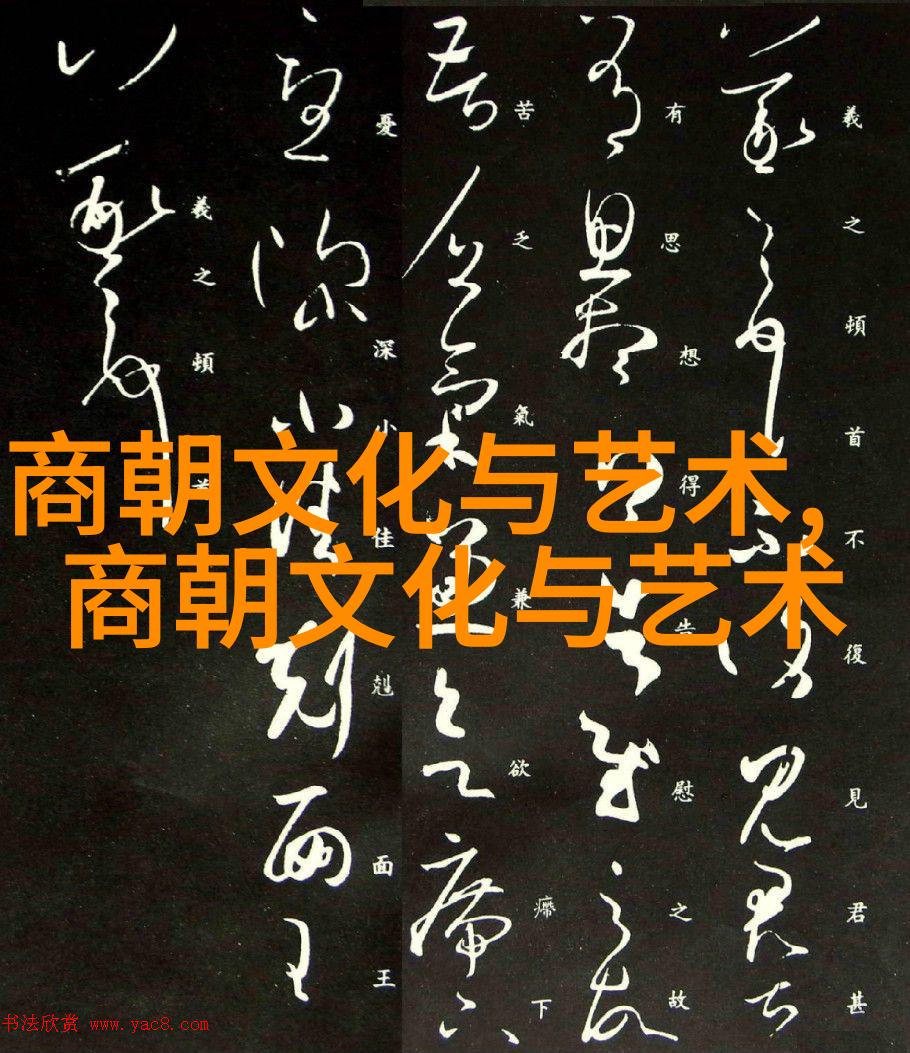 羲之頓首不復見君甚
有思想得告慰之故
苦乏氣兼欲㿃下
憂深小佳剋面王
羲之頓首
商朝文化与艺术,
商朝文化与艺术
书法欣赏 www.yac8.com